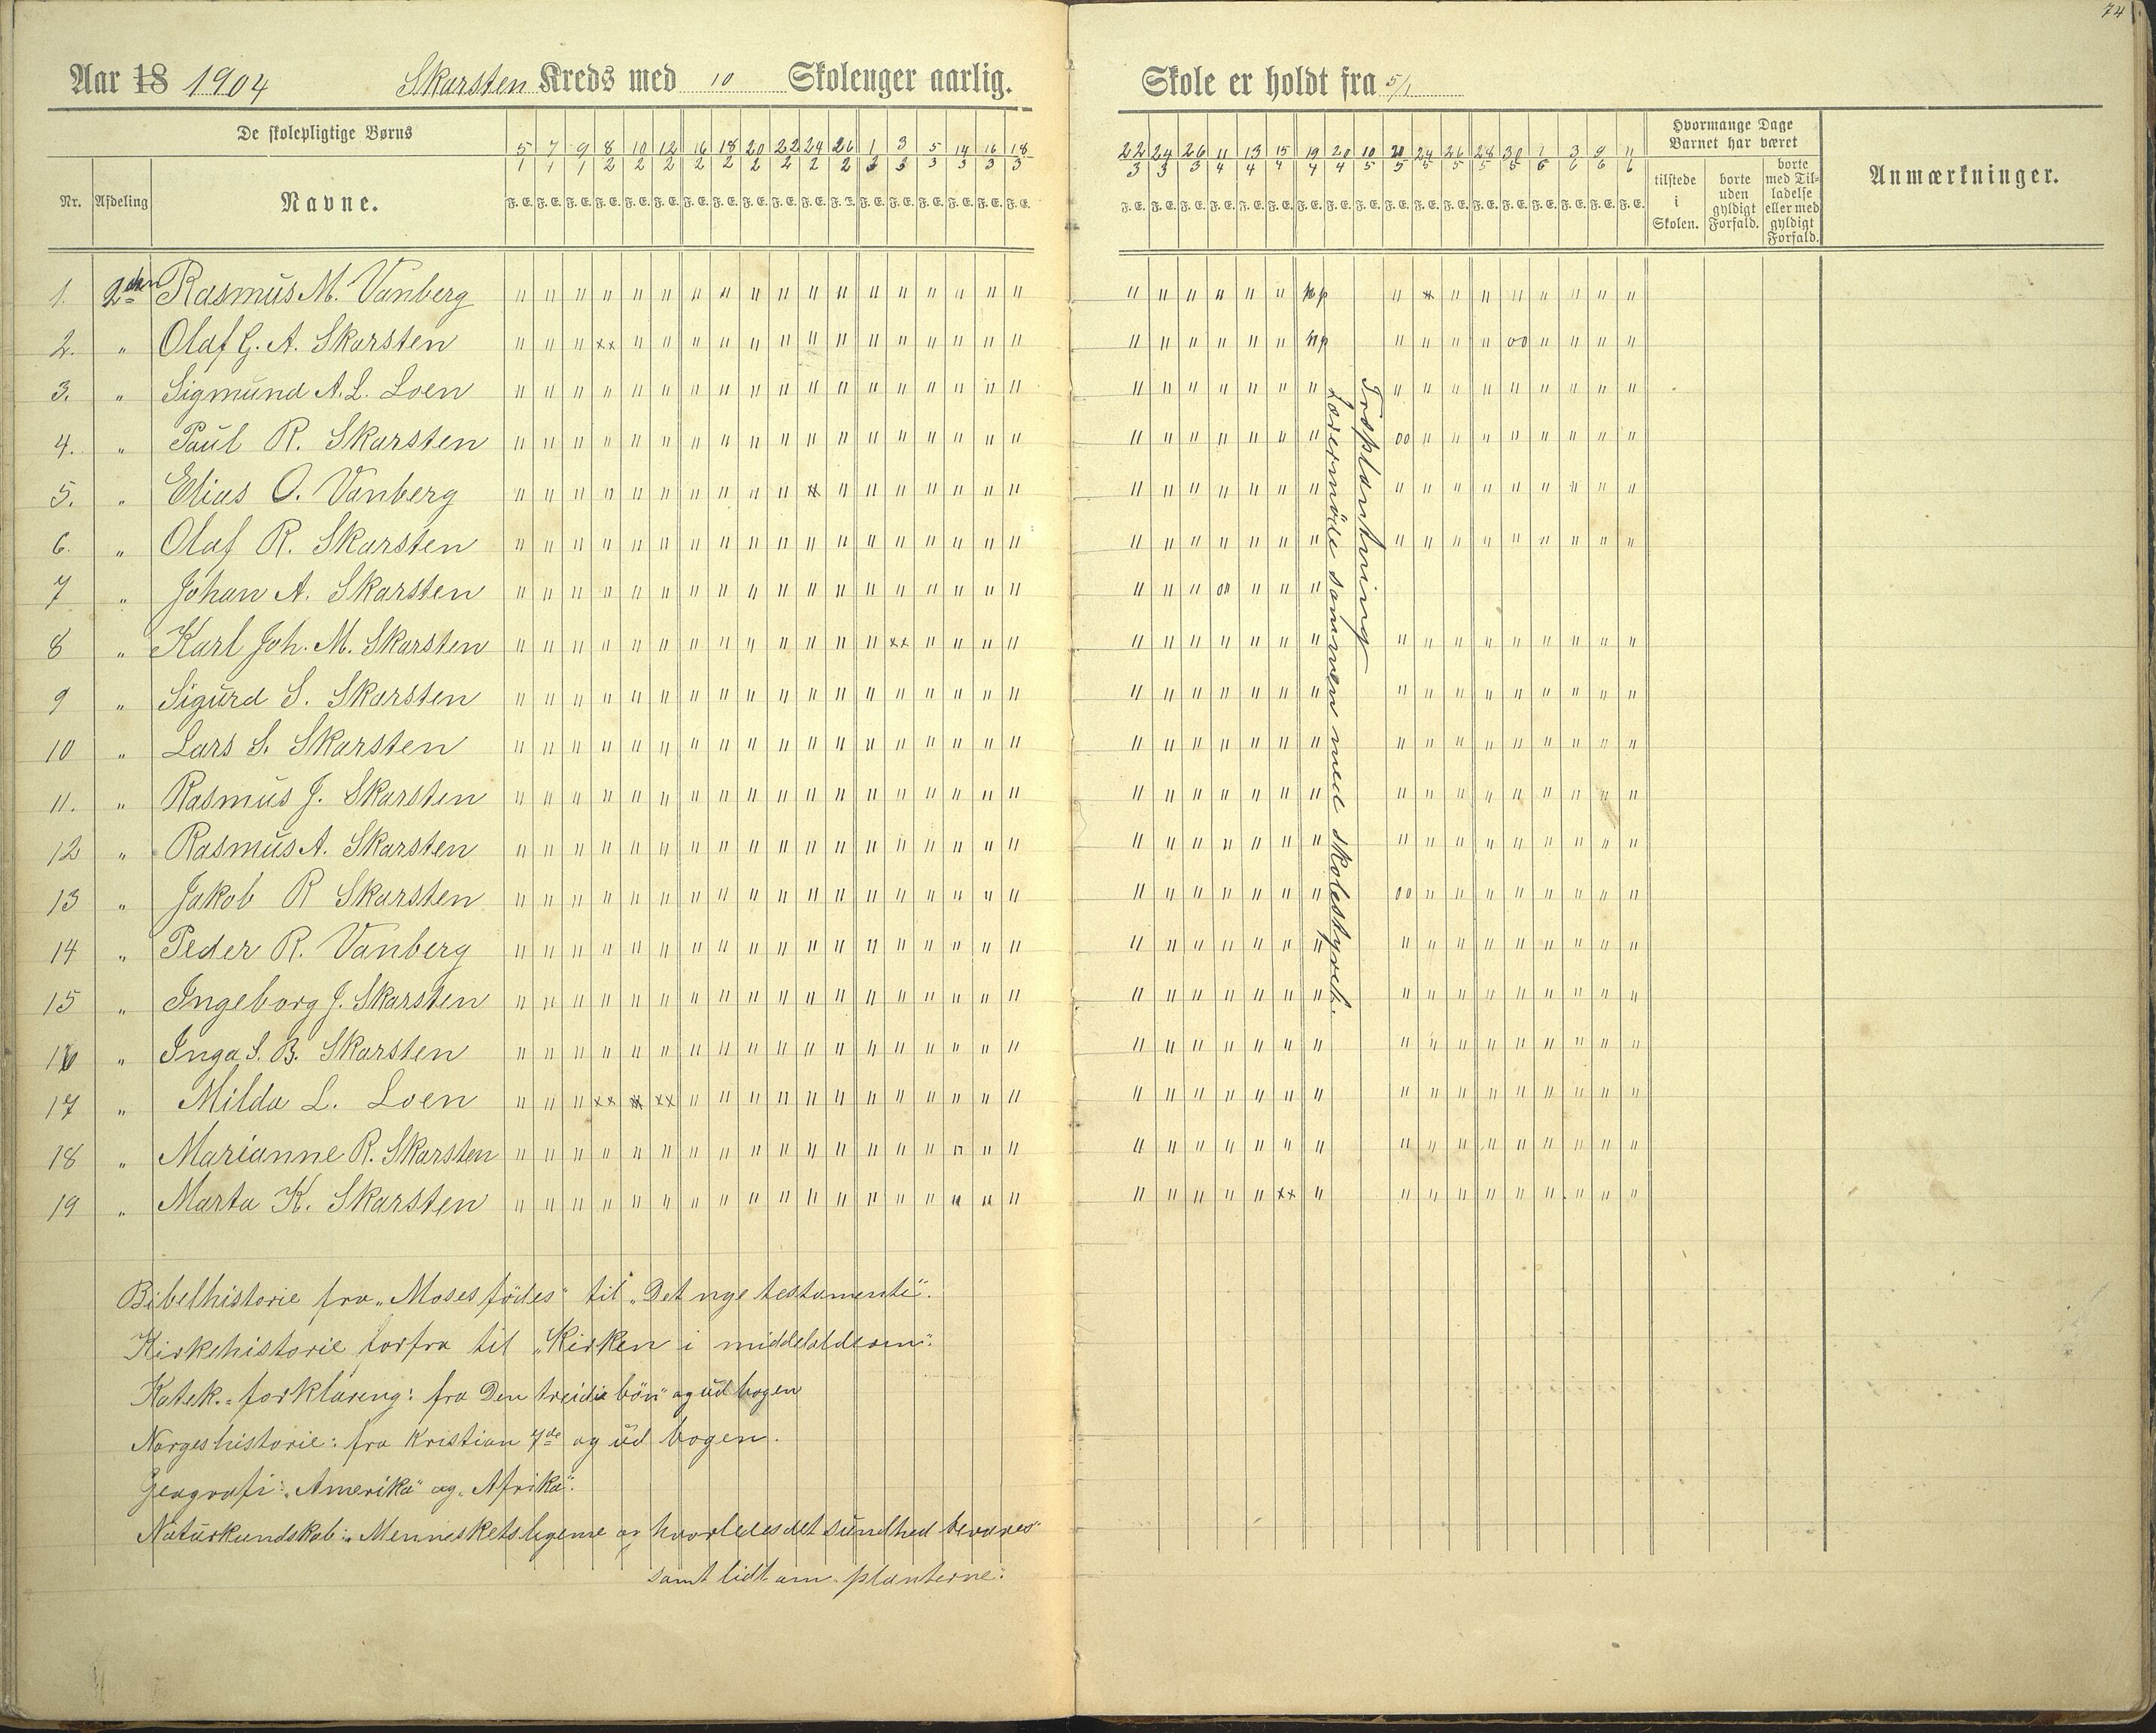 74
Aar 18 1904 Skarsten Kreds med 10 Skoleuger aarlig.
Skole er holdt fra 5/1
De skolepligtige Børns
Nr. Afdeling Navne.
5/1 7/1 9/1 8/2 10/2 12/2 16/2 18/2 20/2 22/2 24/2 26/2 1/3 3/3 5/3 14/3 16/3 18/3
F. E. F. E. F. E. F. E. F. E. F. E. F. E. F. E. F. E. F. E. F. E. F. E. F. E. F. E. F. E. F. E. F. E. F. E.
22/3 24/3 26/3 11/4 13/4 15/4 19/4 20/4 10/5 20/5 24/5 26/5 28/5 30/5 1/6 3/6 9/6 11/6
F. E. F. E. F. E. F. E. F. E. F. E. F. E. F. E. F. E. F. E. F. E. F. E. F. E. F. E. F. E. F. E. F. E. F. E.
Hvormange Dage
Barnet har været
tilstede
i
Skolen.
borte
uden
gyldigt
Forfald.
borte
med Til-
ladelse
eller med
gyldigt
Forfald.
Anmærkninger.
1. 2den Rasmus M. Vanberg
2. " Olaf G. A. Skarsten
3. " Sigmund A. L. Loen
4. " Paul R. Skarsten
5. " Elias O. Vanberg
6. " Olaf R. Skarsten
7 " Johan A. Skarsten
8 " Karl Joh. M. Skarsten
9 " Sigurd S. Skarsten
10 " Lars S. Skarsten
11. " Rasmus J. Skarsten
12 " Rasmus A. Skarsten
13 " Jakob R Skarsten
14 " Peder R. Vanberg
15 " Ingeborg J. Skarsten
16 " Inga S. B. Skarsten
17 " Milda L. Loen
18 " Marianne R. Skarsten
19 " Marta K. Skarsten
Lærermöde sammen med skolestyret.
Træplantning
Bibelhistorie fra „Moses födes" til „Det nye testamente".
Kirkehistorie forfra til „Kirken i middelalderen".
Katek.-forklaring: fra Den treidie bön" og ud bogen
Norgeshistorie: fra Kristian 7de og ud bogen.
Geografi: „Amerika" og „Afrika".
Naturkundskab: „Menneskets legeme og hvorledes det sundhed bevares"
samt lidt om „planterne".